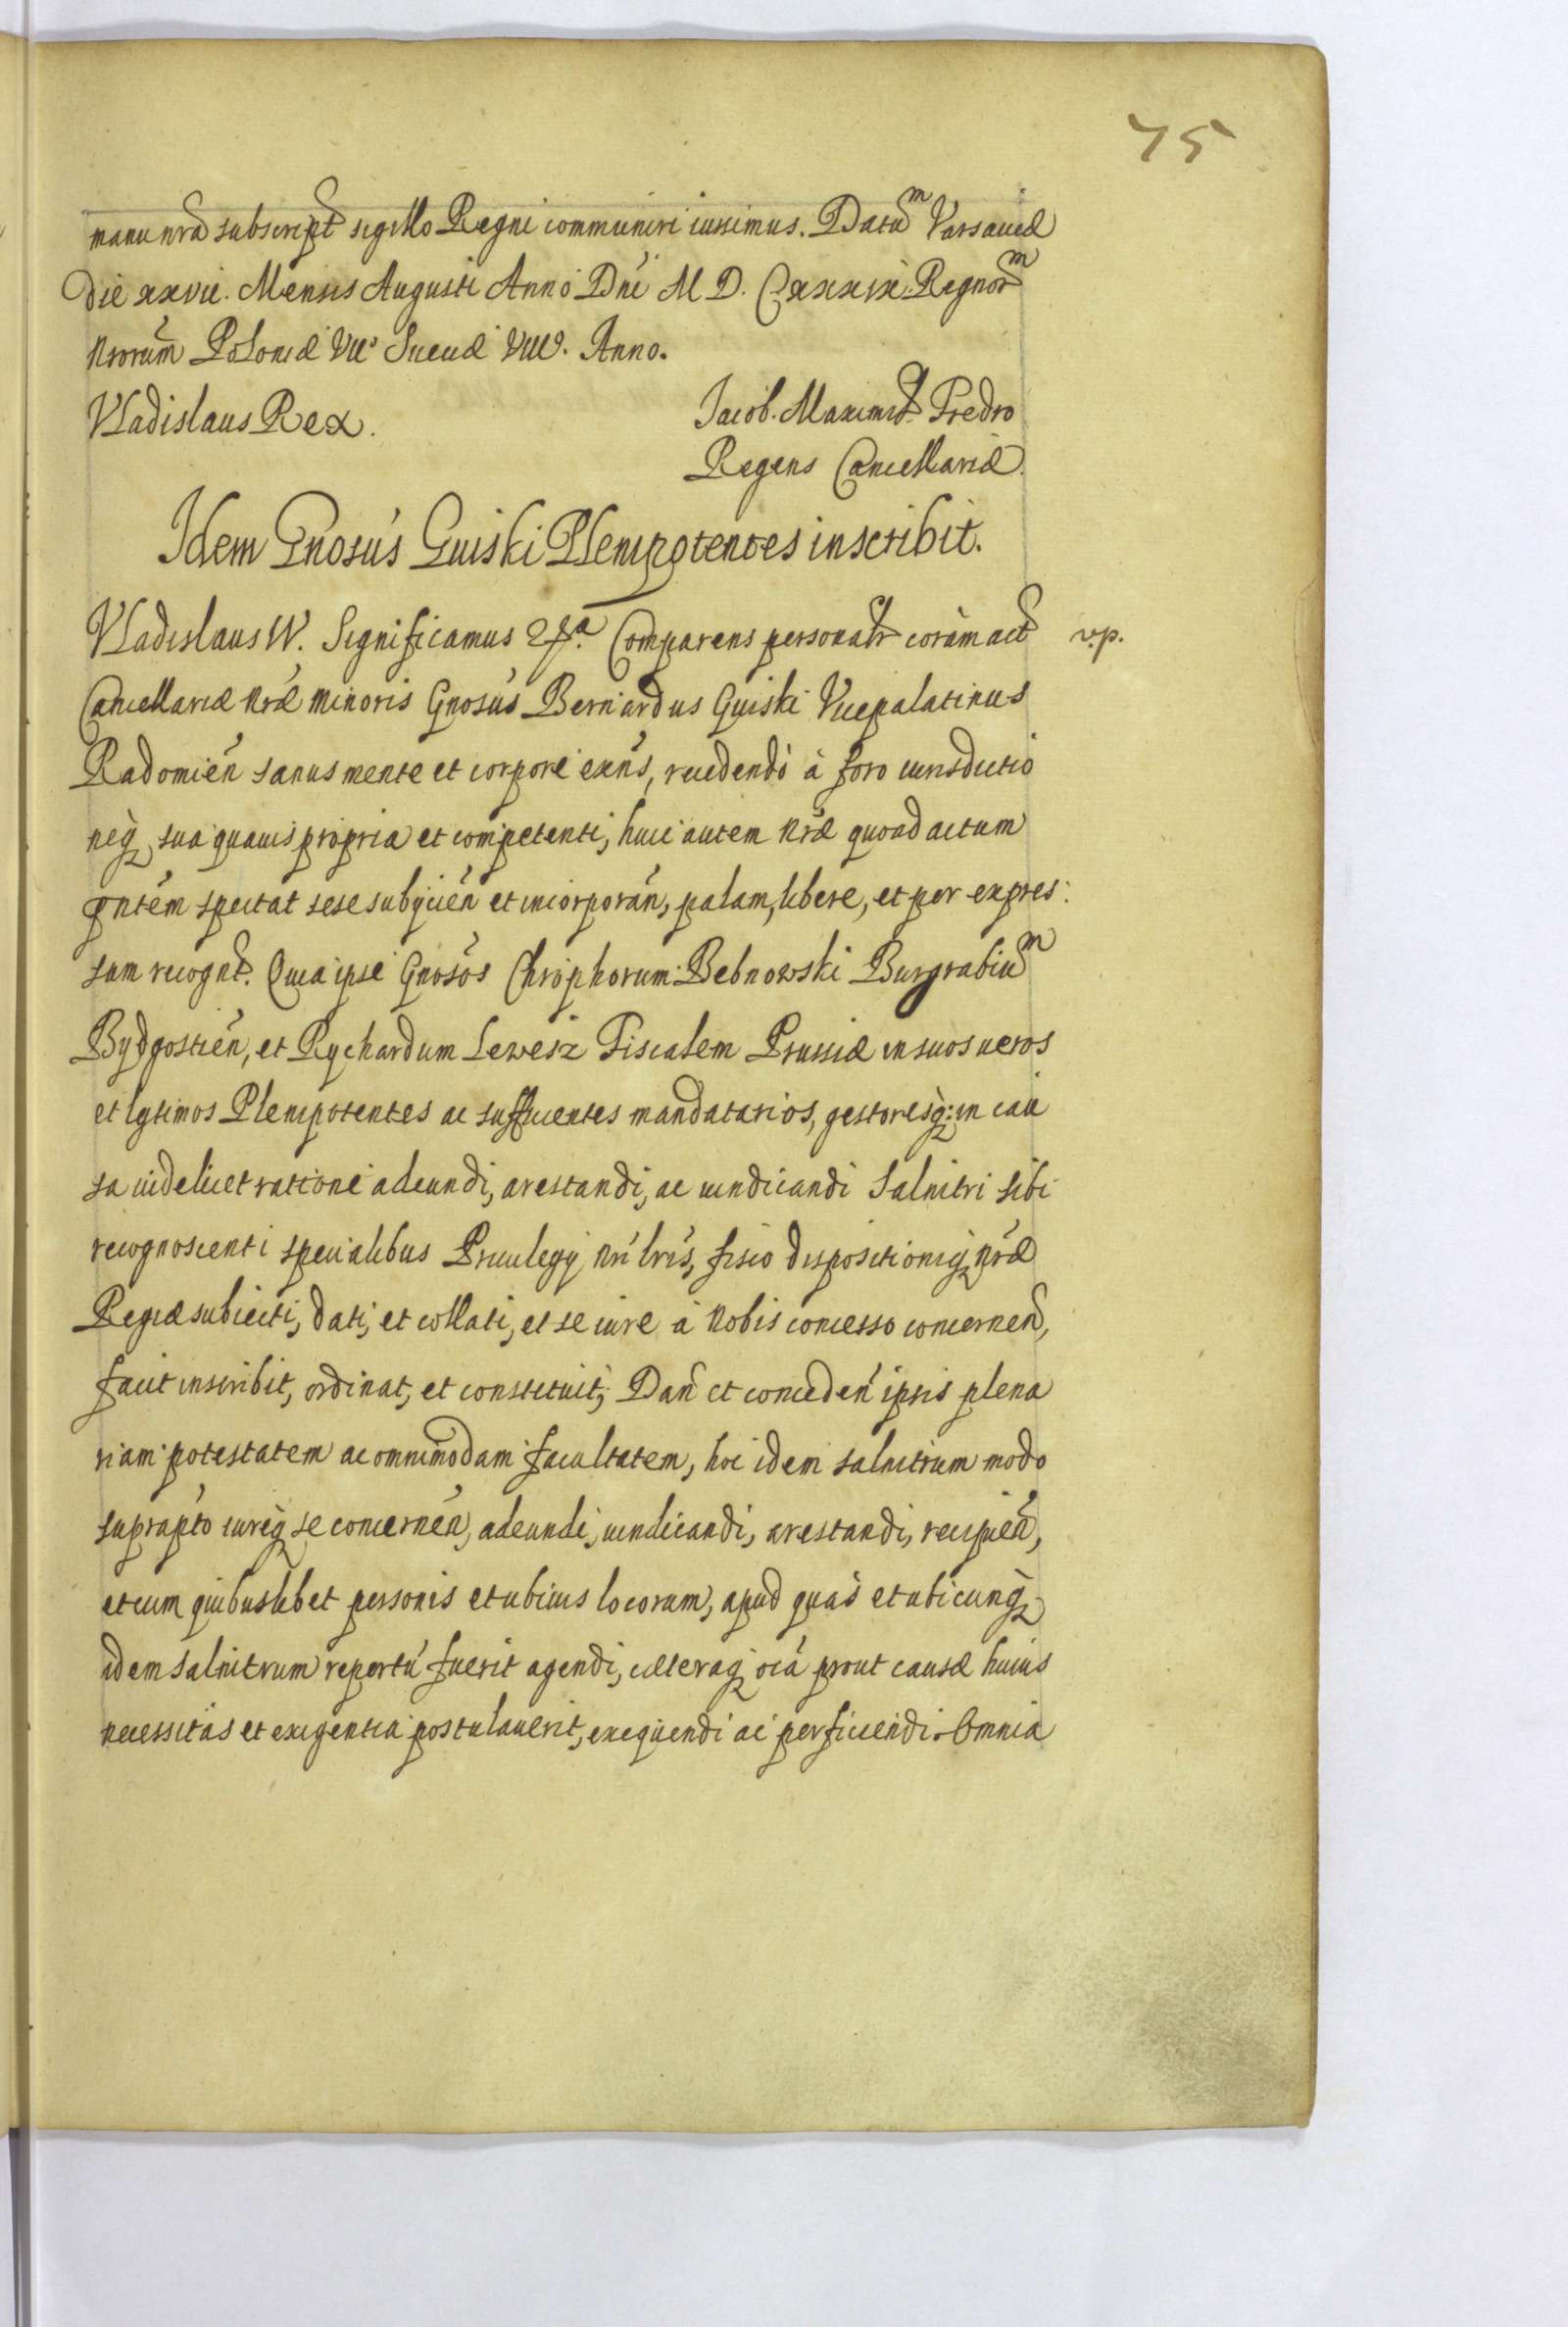 75
manu nrã subscript sigillo Regni communiri iussimus. Datum Varsaviæ
Die xxvii. Mensis Augusti Anno Dni M D. CXXXIX Regnorm
Nrorum Poloniæ VIIo Sueciæ VIIIo. Anno.
Vladislaus Rex.
Jacob. Maximil. Fredro
Regens Cancellariæ.
Idem Gnosus Guiski Plenipotentes inscribit.
Vladislaus IV. Significamus &a. Comparens personalr coràm act
v.p.
Cancellariæ Nræ minoris Gnosus Bernardus Guiski Vicepalatinus
Radomień sanus mente et corpore exns, recedendo à foro iurisdictio
neq sua quavis propria et competenti, huic autem Nræ quoad actum
pntem spectat sese subijcień et incorporań, palam, libere, et per expres:
sum recognt. Quia ipse Gnosos Chrophorum Bebnowski Burgrabium
Bydgostień, et Rychardum Lewesz Fiscalem Prussiæ in suos veros
et lgtimos Plenipotentes ac sufficientes mandatarios, gestoresq: in cau
sa videlicet ratione adeundi, arestandi, ac vindicandi Salnitri sibi
recognoscenti specialibus Privilegij Nri lris, fisco dispositioniq Nræ
Regiæ subiecti, dati, et collati, et se iure à Nobis concesso concerneń,
facit inscribit, ordinat, et constituit; Dań et concedeń ipsis plena
riam potestatem ac omnimodam facultatem, hoc idem salnitrum modo
suprapto iureq se concerneń, adeundi, vindicandi, arestandi, recipień,
et cum quibuslibet personis et ubivis locorum, apud quas et ubicunq
idem salnitrum repertũ fuerit agendi, cæteraq oia prout causæ huius
necessitas et exigentia postulaverit, exequendi ac perficiendi. Omnia